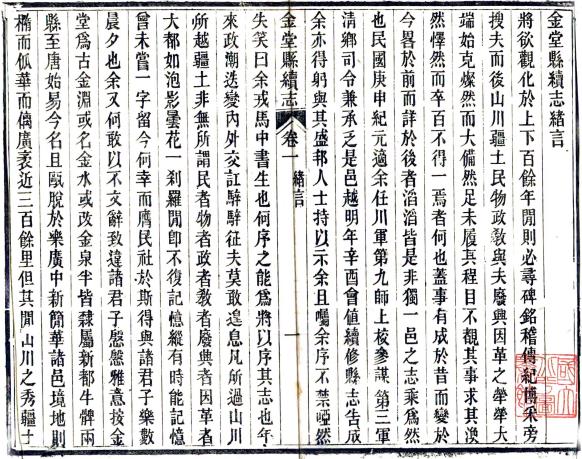 金堂縣續志緒言
將欲觀化於上下百餘年閒則必尋碑銘稽傳紀博采旁
搜夫而後山川疆土民物政敎與夫廢興因革之犖犖大
端始克燦然而大備然足未履其程目不覩其事求其渙
然懌然而卒百不得一焉者何也蓋事有成於昔而變於
今畧於前而詳於後者滔滔皆是非獨一邑之志乘爲然
也民國庚申紀元適余任川軍第九師上校參謀第三軍
清鄉司令兼承乏是邑越明年辛酉會値續修縣志告成
余亦得躬與其盛邦人士持以示余且囑余序不禁啞然
金堂縣續志 卷一 緒言 一
失笑曰余戎馬中書生也何序之能爲將以序其志也年
來政潮迭變內外交訌駪駪征夫莫敢遑息凡所過山川
所越疆土非無所謂民者物者政者敎者廢興者因革者
大都如泡影曇花一刹羅閒卽不復記憶縱有時能記憶
曾未嘗一字留今何幸而膺民社於斯得與諸君子樂數
晨夕也余又何敢以不文辭致違諸君子慇慇雅意按金
堂爲古金淵或名金水或改金泉半皆隸屬新都牛鞞兩
縣至唐始易今名且甌脫於樂廣中新簡華諸邑境地則
橢而華而廣袤近三百餘里但其閒山川之秀疆土